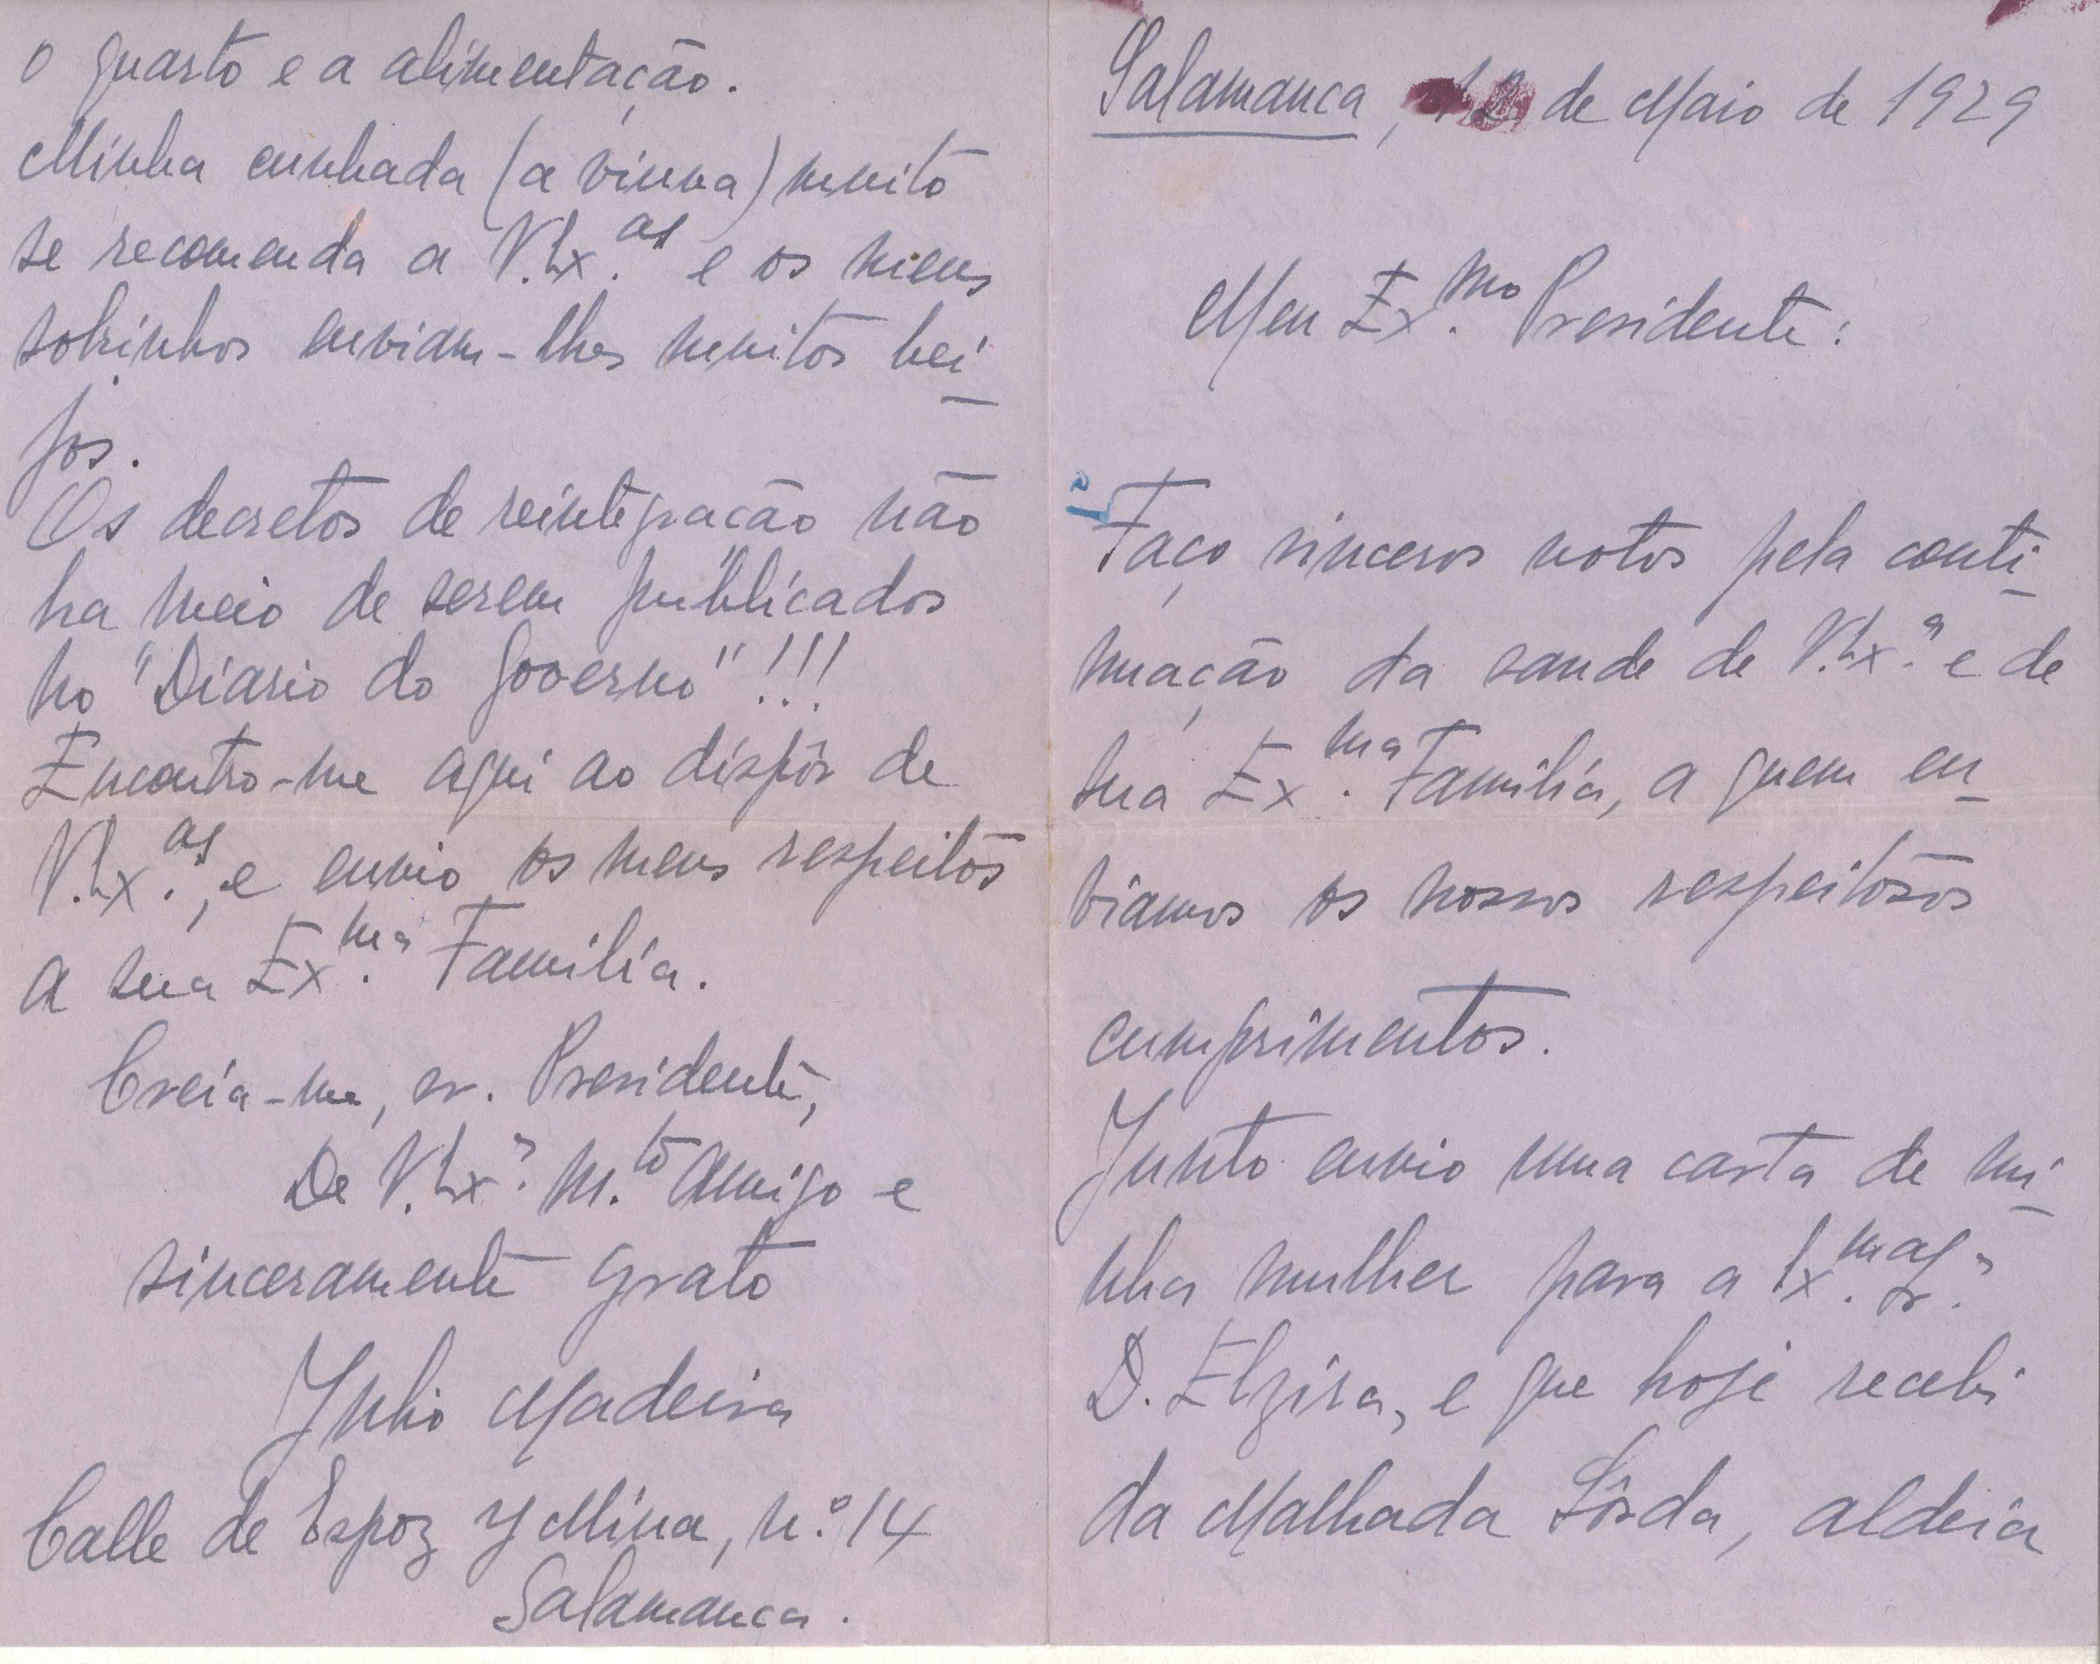 Salamanca, 12 de Maio de 1929
Meu Ex.mo Presidente:
1º
Faço sinceros votos pela conti-
nuação da saude de V. Ex.ª e de
sua Ex.ma Familia, a quem en-
viamos os nossos respeitosos
cumprimentos.
Junto envio uma carta de mi-
nha mulher para a Ex.ma Sr.ª
D. Elzira, e que hoje recebi
da Malhada Sôrda, aldeia
o quarto e a alimentação.
Minha cunhada (a viuva) muito
se recomenda a V. Ex.as e os meus
sobrinhos enviam-lhes muitos bei-
jos.
Os decretos de reintegração não
ha meio de serem publicados
no "Diario do Governo"!!!
Encontro-me aqui ao dispôr de
V. Ex.as, e envio os meus respeitos
a sua Ex.ma Familia.
Creia-me, sr. Presidente,
De V. Ex.ª m.to amigo e
sinceramente grato
Julio Madeira
Calle de Espoz y Mina, n.º 14
Salamanca.